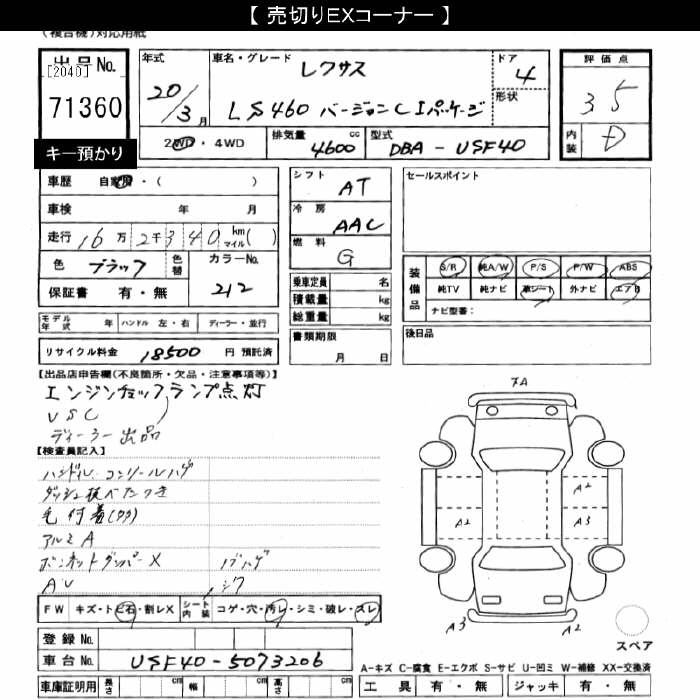 【 売切りEXコーナー 】
(複合機)対応用紙
出品No.
[2040]
71360
キー預かり
年式 20/3月
車名・グレード レクサス
LS460 バージョンC Iパッケージ
ドア 4
形状
評価点 3 5
内装 D
2WD・4WD 排気量 4600 cc 型式 DBA-USF40
車歴 自家用・( )
車検 年 月
走行 16万2千340 km マイル( )
色 ブラック 色替 カラーNo. 212
保証書 有・無
モデル年式 年 ハンドル 左・右 ディーラー・並行
リサイクル料金 18500 円 預託済
シフト AT
冷房 AAC
燃料 G
乗車定員 名
積載量 kg
総重量 kg
書類期限
月 日
セールスポイント
装備品 S/R 純A/W P/S P/W ABS
純TV 純ナビ 革シート 外ナビ エアB
ナビ型番:
後日品
【出品店申告欄(不良箇所・欠品・注意事項等)】
エンジンチェックランプ点灯
VSC
ディーラー出品
【検査員記入】
ハンドル、コンソールハゲ
ダッシュ板ベタつき
毛付着(クク)
アルミA
ボンネットダンパーX
AU
シワ
FW キズ・トビ石・割レX シート内装 コゲ・穴・汚レ・シミ・破レ・スレ
登録No.
車台No. USF40-5073206
車庫証明用 長さ cm 幅 cm 高さ cm
A
A2
A2
A3
A3
A2
スペア
A-キズ C-腐食 E-エクボ S-サビ U-凹ミ W-補修 XX-交換済
工具 有・無 ジャッキ 有・無